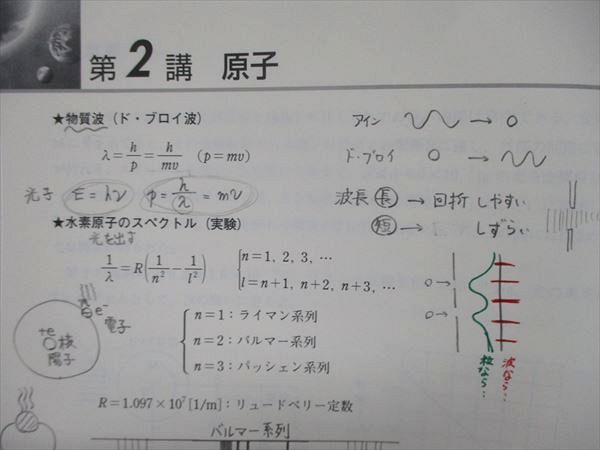 第2講 原子
★物質波（ド・ブロイ波）
λ=h/p=h/mv (p=mv)
光子 E=hν p=h/λ=mv
アイン → ○
ド・ブロイ ○ →
波長 長 → 回折 しやすい
短 → 〃 しずらい
★水素原子のスペクトル（実験）
光を出す
1/λ=R(1/n²-1/l²) {n=1, 2, 3, …
l=n+1, n+2, n+3, …
e⁻
電子
+e
核
陽子
n=1：ライマン系列
n=2：バルマー系列
n=3：パッシェン系列
○→
○→
粒なら…
波なら…
R=1.097×10⁷[1/m]：リュードベリー定数
バルマー系列